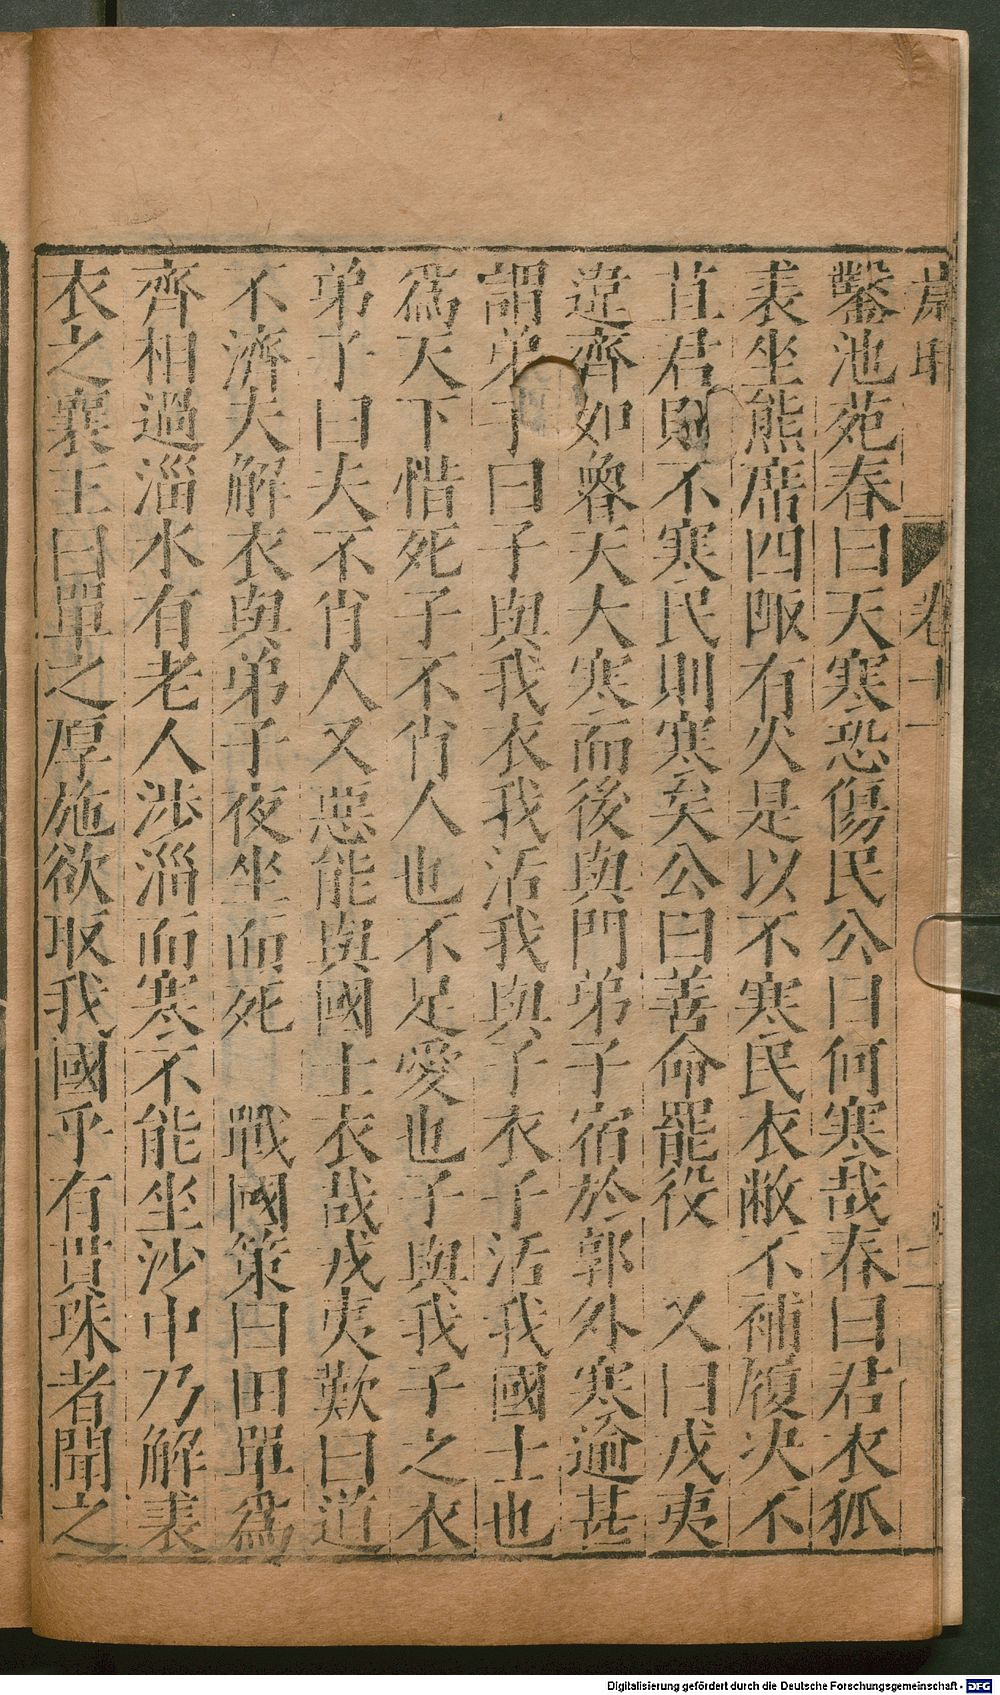 卷十
鑿池苑春曰天寒恐傷民公曰何寒哉春曰君衣狐
裘坐熊席四陬有火是以不寒民衣敝不補履決不
苴君則不寒民則寒矣公曰善命罷役　又曰戎夷
違齊如魯天大寒而後與門弟子宿於郭外寒逾甚
謂弟子曰子與我衣我活我與子衣子活我國士也
爲天下惜死子不肖人也不足愛也子與我子之衣
弟子曰夫不肖人又惡能與國士衣哉戎夷歎曰道
不濟夫解衣與弟子夜坐而死　戰國策曰田單爲
齊相過淄水有老人涉淄而寒不能坐沙中乃解裘
衣之襄王曰單之厚施欲取我國乎有貫珠者聞之
Digitalisierung gefördert durch die Deutsche Forschungsgemeinschaft - DFG